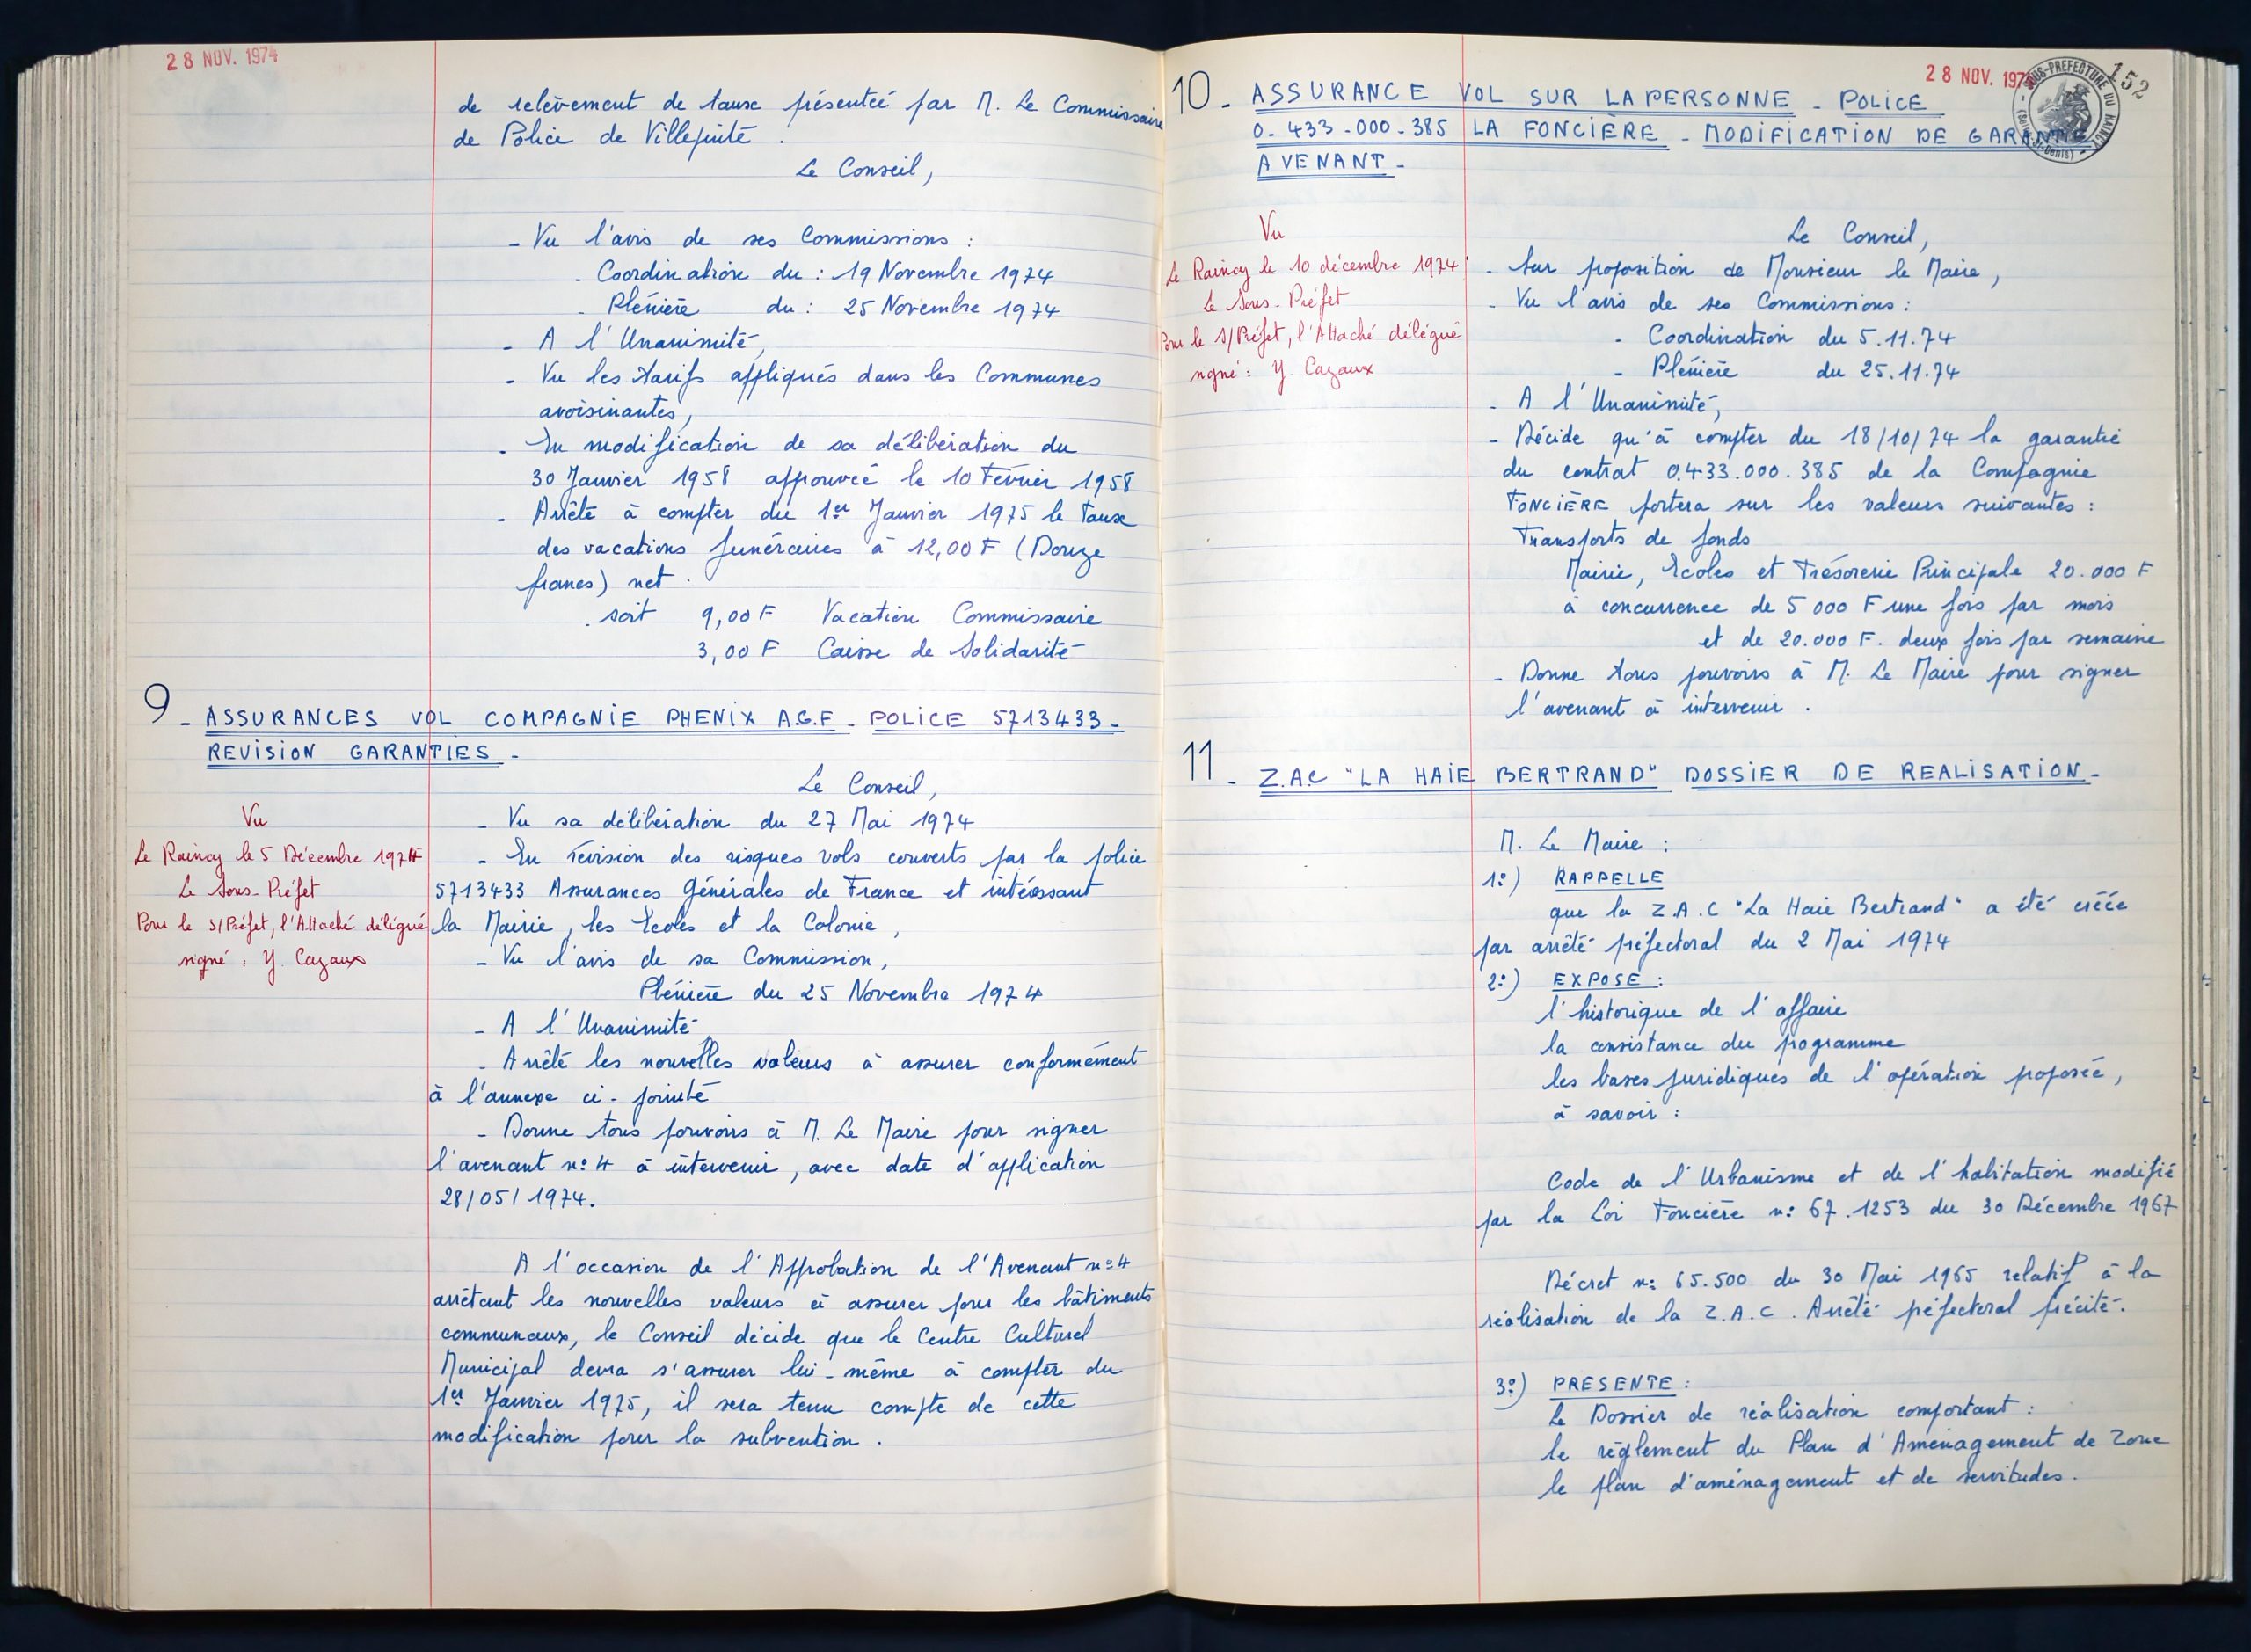 28 NOV. 1974
de relèvement de taux présentée par M. Le Commissaire
de Police de Villepinte.
Le Conseil,
- Vu l'avis de ses Commissions :
- Coordination du : 19 Novembre 1974
- Plénière du : 25 Novembre 1974
- A l'Unanimité,
- Vu les tarifs appliqués dans les Communes
avoisinantes,
- En modification de sa délibération du
30 Janvier 1958 approuvée le 10 Février 1958
- Arrête à compter du 1er Janvier 1975 le taux
des vacations funéraires à 12,00 F (Douze
francs) net.
. soit 9,00 F Vacation Commissaire
3,00 F Caisse de Solidarité
9 - ASSURANCES VOL COMPAGNIE PHENIX A.G.F - POLICE 5713433 -
REVISION GARANTIES -
Le Conseil,
Vu
Le Raincy le 5 Décembre 1974
Le Sous-Préfet
Pour le S/Préfet, l'Attaché délégué
signé : Y. Cazaux
- Vu sa délibération du 27 Mai 1974
- En révision des risques vols couverts par la police
5713433 Assurances Générales de France et intéressant
la Mairie, les Ecoles et la Colonie,
- Vu l'avis de sa Commission,
Plénière du 25 Novembre 1974
- A l'Unanimité,
- Arrête les nouvelles valeurs à assurer conformément
à l'annexe ci-jointe
- Donne tous pouvoirs à M. Le Maire pour signer
l'avenant n°4 à intervenir, avec date d'application
28/05/1974.
A l'occasion de l'Approbation de l'Avenant n°4
arrêtant les nouvelles valeurs à assurer pour les bâtiments
communaux, le Conseil décide que le Centre Culturel
Municipal devra s'assurer lui-même à compter du
1er Janvier 1975, il sera tenu compte de cette
modification pour la subvention.
28 NOV. 1974
SOUS-PREFECTURE DU RAINCY
(Seine-St-Denis)
152
10 - ASSURANCE VOL SUR LA PERSONNE - POLICE
0-433-000-385 LA FONCIÈRE - MODIFICATION DE GARANTIE
AVENANT -
Vu
Le Raincy le 10 décembre 1974
Le Sous-Préfet
Pour le S/Préfet, l'Attaché délégué
signé : Y. Cazaux
Le Conseil,
- Sur proposition de Monsieur le Maire,
- Vu l'avis de ses Commissions :
- Coordination du 5.11.74
- Plénière du 25.11.74
- A l'Unanimité,
- Décide qu'à compter du 18/10/74 la garantie
du contrat 0.433.000.385 de la Compagnie
FONCIÈRE portera sur les valeurs suivantes :
Transports de fonds
Mairie, Ecoles et Trésorerie Principale 20.000 F
à concurrence de 5 000 F une fois par mois
et de 20.000 F. deux fois par semaine
- Donne tous pouvoirs à M. Le Maire pour signer
l'avenant à intervenir.
11 - Z.A.C "LA HAIE BERTRAND" DOSSIER DE REALISATION -
M. Le Maire :
1°) RAPPELLE
que la Z.A.C "La Haie Bertrand" a été créée
par arrêté préfectoral du 2 Mai 1974
2°) EXPOSE :
l'historique de l'affaire
la consistance du programme
les bases juridiques de l'opération proposée,
à savoir :
Code de l'Urbanisme et de l'habitation modifié
par la Loi Foncière n° 67.1253 du 30 Décembre 1967
Décret n° 65.500 du 30 Mai 1965 relatif à la
réalisation de la Z.A.C. Arrêté préfectoral précité.
3°) PRESENTE :
Le Dossier de réalisation comportant :
le règlement du Plan d'Aménagement de Zone
le plan d'aménagement et de servitudes.